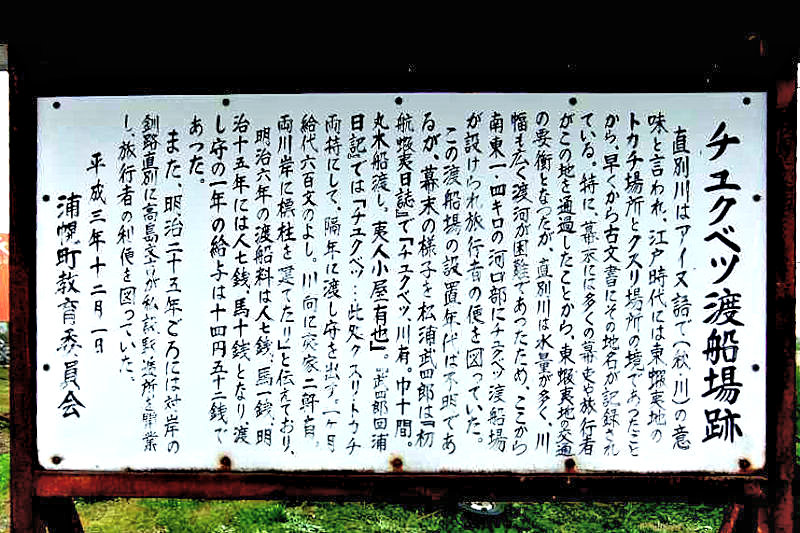 チュクベツ渡船場跡
直別川はアイヌ語で(秋川)の意
味と言われ、江戸時代には東蝦夷地の
トカチ場所とクスリ場所の境であったこと
から、早くから古文書にその地名が記録され
ている。特に、幕末には多くの幕吏や旅行者
がこの地を通過したことから、東蝦夷地の交通
の要衝となったが、直別川は水量が多く、川
幅も広く渡河が困難であったため、ここから
南東一・四キロの河口部にチュクベツ渡船場
が設けられ旅行者の便を図っていた。
この渡船場の設置年代は不明であ
るが、幕末の様子を松浦武四郎は『初
航蝦夷日誌』で「チュクベツ、川有。巾十間。
丸木船渡し。夷人小屋有也」。『武四郎回浦
日記』では「チュクベツ…此処クスリトカチ
両持にして、隔年に渡し守を出す。一ヶ月
給代六百文のよし。川向に夷家二軒有。
両川岸に標柱を建てたり」と伝えており、
明治六年の渡船料は人七銭、馬一銭、明
治十五年には人七銭、馬十銭となり、渡
し守の一年の給与は十四円五十二銭で
あった。
また、明治二十五年ごろには対岸の
釧路直別に高島が私設駅逓所を開業
し、旅行者の利便を図っていた。
平成三年十二月一日
浦幌町教育委員会